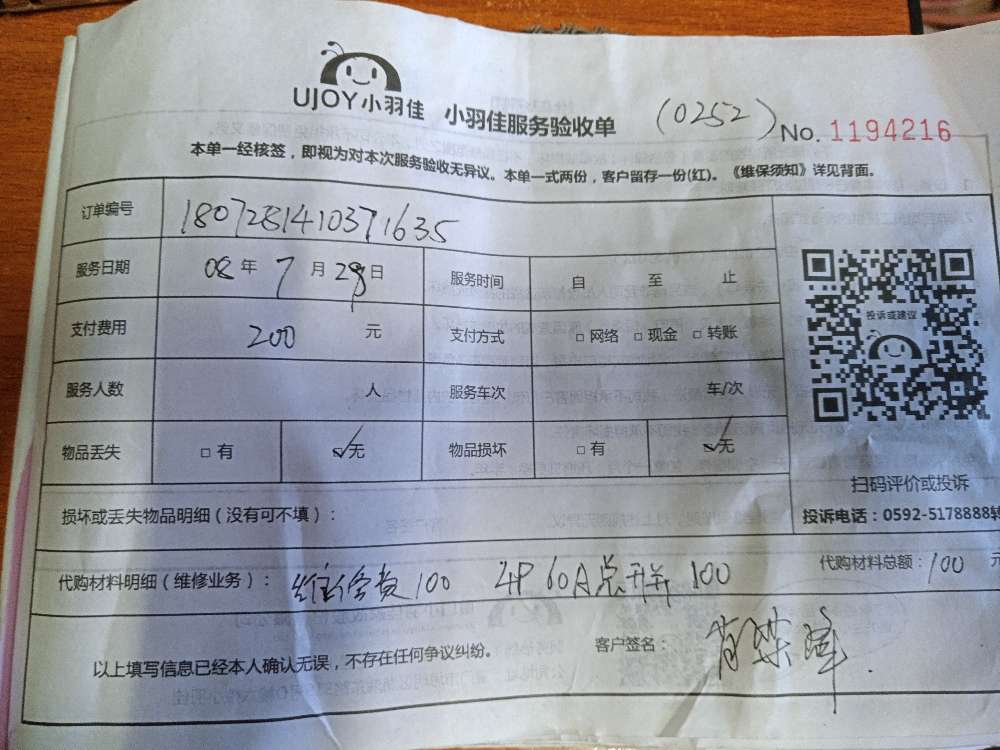 UJOY小羽佳 小羽佳服务验收单 (0252) No. 1194216
本单一经核签，即视为对本次服务验收无异议。本单一式两份，客户留存一份(红)。《维保须知》详见背面。
订单编号 1807281410371635
服务日期 08年7月28日 服务时间 自 至 止
支付费用 200 元 支付方式 □网络 □现金 □转账
服务人数 人 服务车次 车/次
物品丢失 □有 ☑无 物品损坏 □有 ☑无
投诉或建议
扫码评价或投诉
投诉电话：0592-5178888转
损坏或丢失物品明细（没有可不填）：
代购材料明细（维修业务）： 维修费100 4P 60A总开关 100 代购材料总额：100 元
以上填写信息已经本人确认无误，不存在任何争议纠纷。 客户签名：